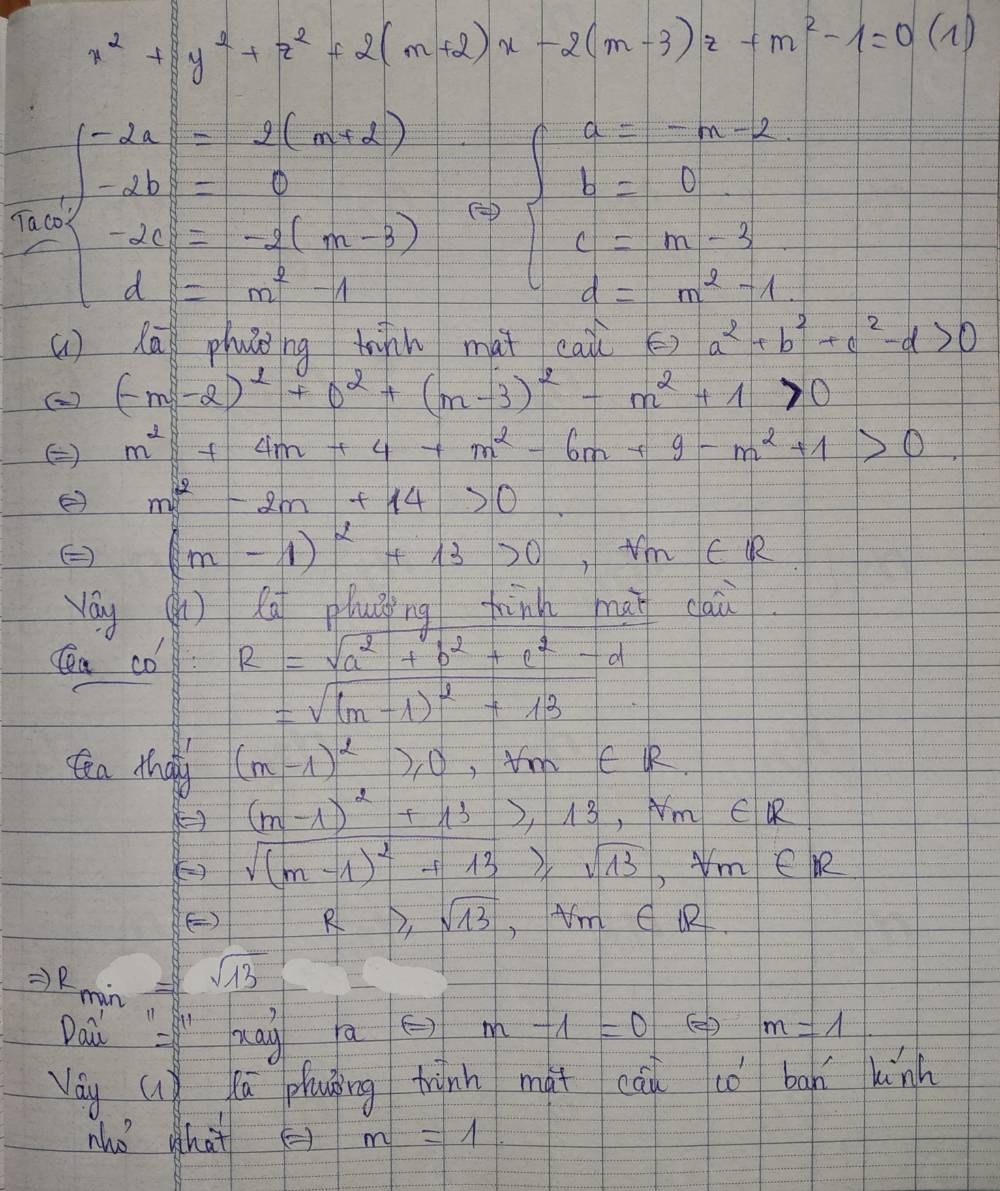 x² + y² + z² + 2(m+2)x - 2(m-3)z + m² - 1 = 0 (1)
Ta có: { -2a = 2(m+2) ⇔ { a = -m-2.
-2b = 0 b = 0.
-2c = -2(m-3) c = m-3.
d = m² - 1 d = m² - 1.
(1) là phương trình mặt cầu ⇔ a² + b² + c² - d > 0
⇔ (-m-2)² + 0² + (m-3)² - m² + 1 > 0
⇔ m² + 4m + 4 + m² - 6m + 9 - m² + 1 > 0.
⇔ m² - 2m + 14 > 0.
⇔ (m-1)² + 13 > 0, ∀m ∈ ℝ
Vậy (1) là phương trình mặt cầu.
Ta có: R = √(a² + b² + c² - d)
= √((m-1)² + 13)
Ta thấy (m-1)² ≥ 0, ∀m ∈ ℝ.
⇔ (m-1)² + 13 ≥ 13, ∀m ∈ ℝ
⇔ √((m-1)² + 13) ≥ √13, ∀m ∈ ℝ
⇔ R ≥ √13, ∀m ∈ ℝ.
⇒ R min = √13
Dấu "=" xảy ra ⇔ m - 1 = 0 ⇔ m = 1.
Vậy (1) là phương trình mặt cầu có bán kính
nhỏ nhất ⇔ m = 1.